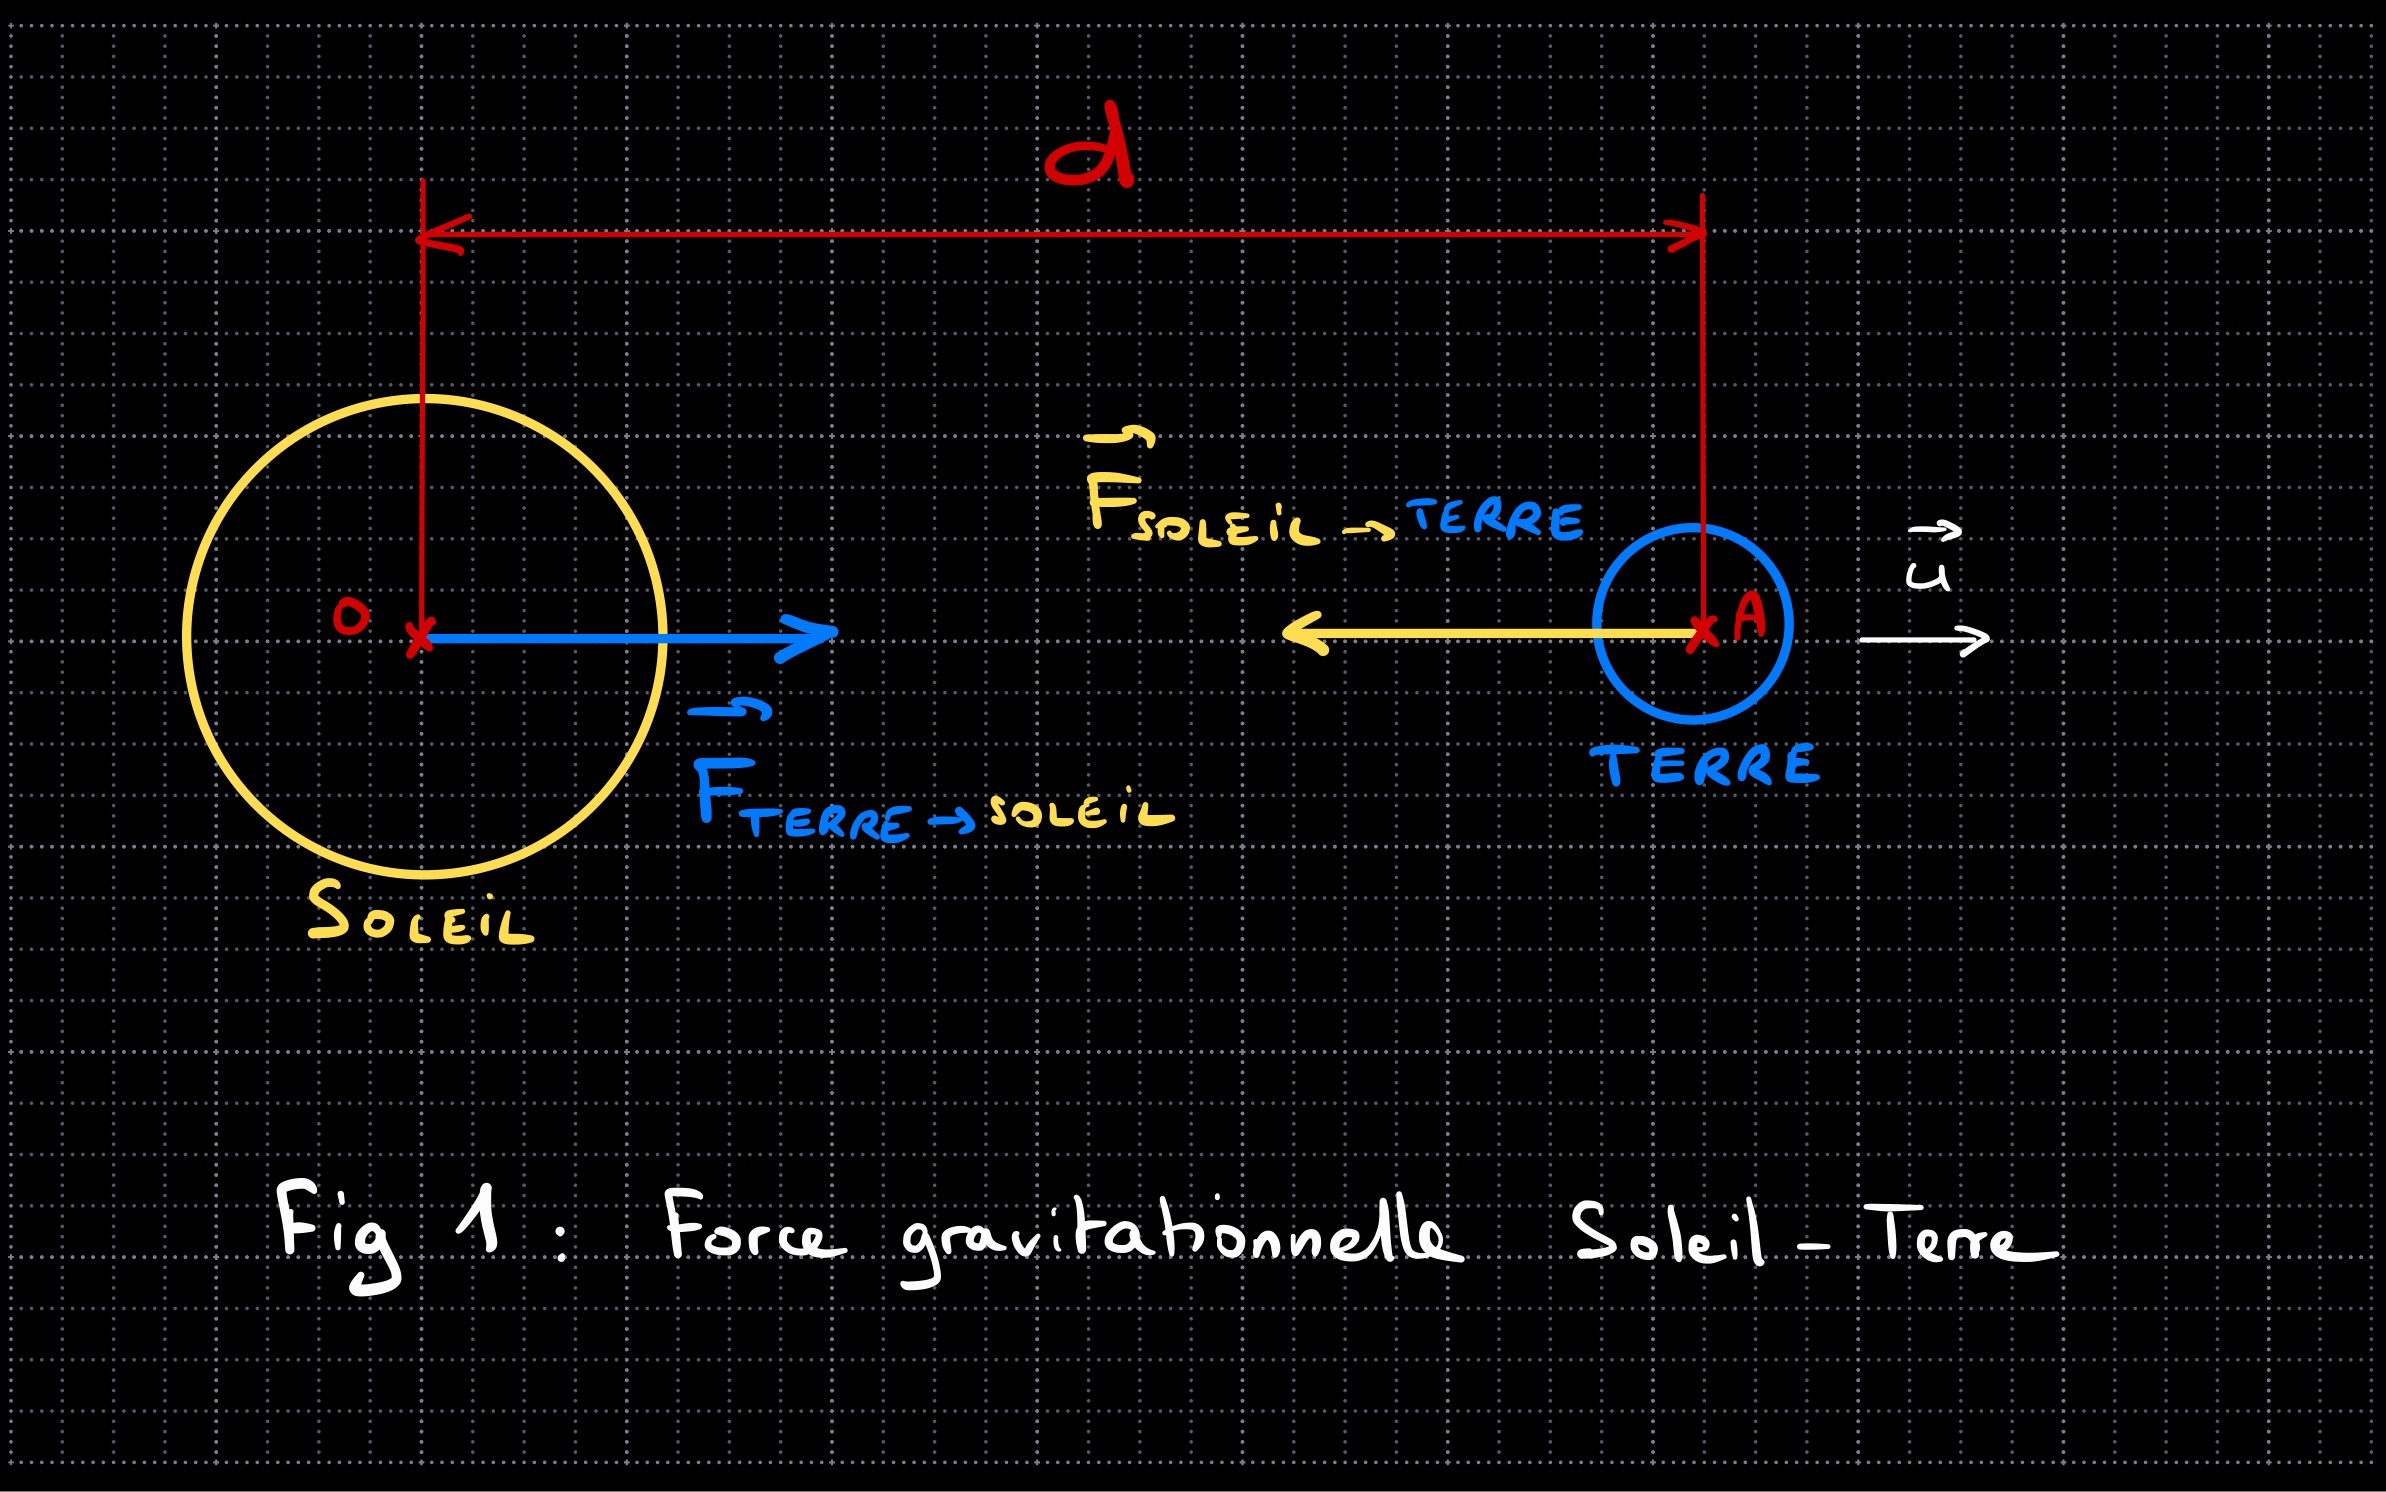 d
F⃗ SOLEIL → TERRE
u⃗
O
A
F⃗ TERRE → SOLEIL
TERRE
SOLEIL
Fig 1 : Force gravitationnelle Soleil - Terre